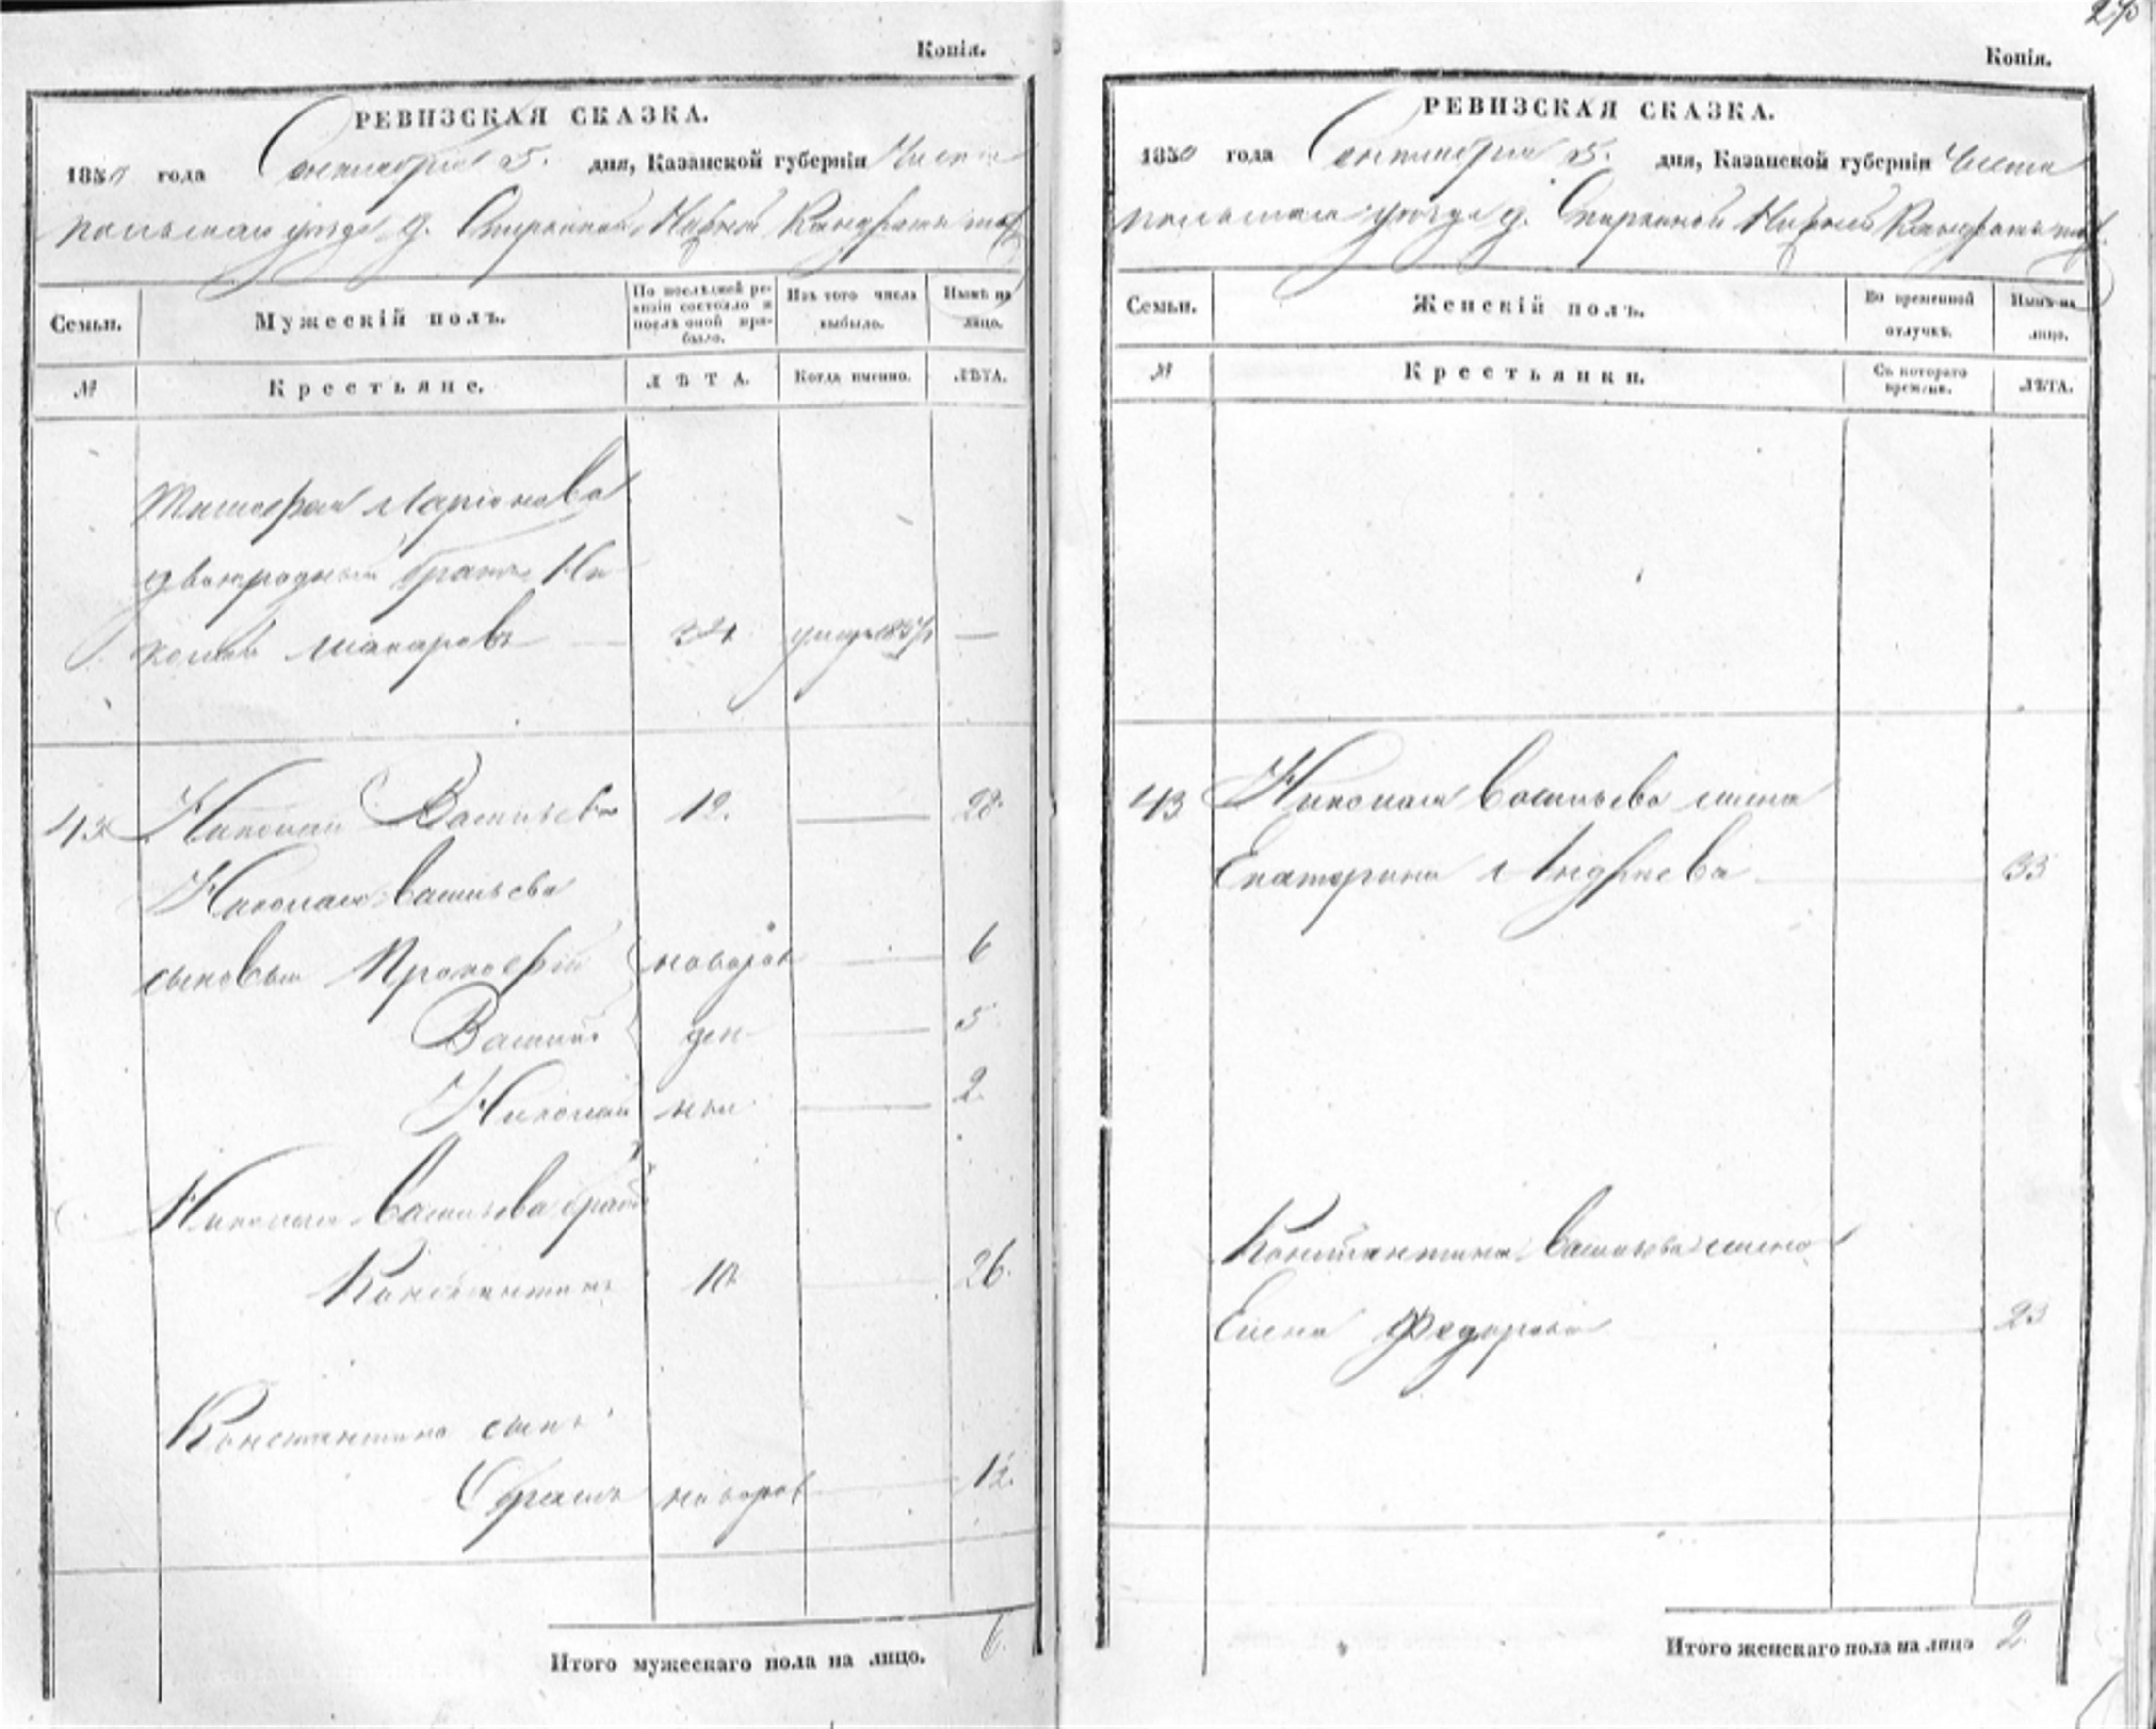 Копія.
РЕВИЗСКАЯ СКАЗКА.
1850 года Сентября 5. дня, Казанской губерніи Чисто
польскаго уезда д.
Семьи.
Мужескій полъ.
По послѣдней ре-
визіи состояло и
послѣ оной при-
было.
Изъ того числа
выбыло.
Нынѣ на
лицо.
№
Крестьяне.
ЛѢТА.
Когда именно.
ЛѢТА.
Тимофея Ларіонова
двоюродный братъ Ни
Макаровъ — —
43 Николай Васильевъ 12. — 28
Николая Васильева
сыновья Прокофій новорож — 6
Василій ден — 5
Николай ные — 2
Николая Васильева братъ
Константинъ 10 — 26.
Константина сынъ
новорож — 1/2.
Итого мужескаго пола на лицо. 6.
Копія.
РЕВИЗСКАЯ СКАЗКА.
1850 года Сентября 5. дня, Казанской губерніи Чисто
польскаго уезда д.
Семьи.
Женскій полъ.
Во временной
отлучкѣ.
Нынѣ на
лицо.
№
Крестьянки.
Съ котораго
времени.
ЛѢТА.
43 Николая Васильева жена
Екатерина Андреева — 33
Константина Васильева жена
Елена Федорова — 23
Итого женскаго пола на лицо 2